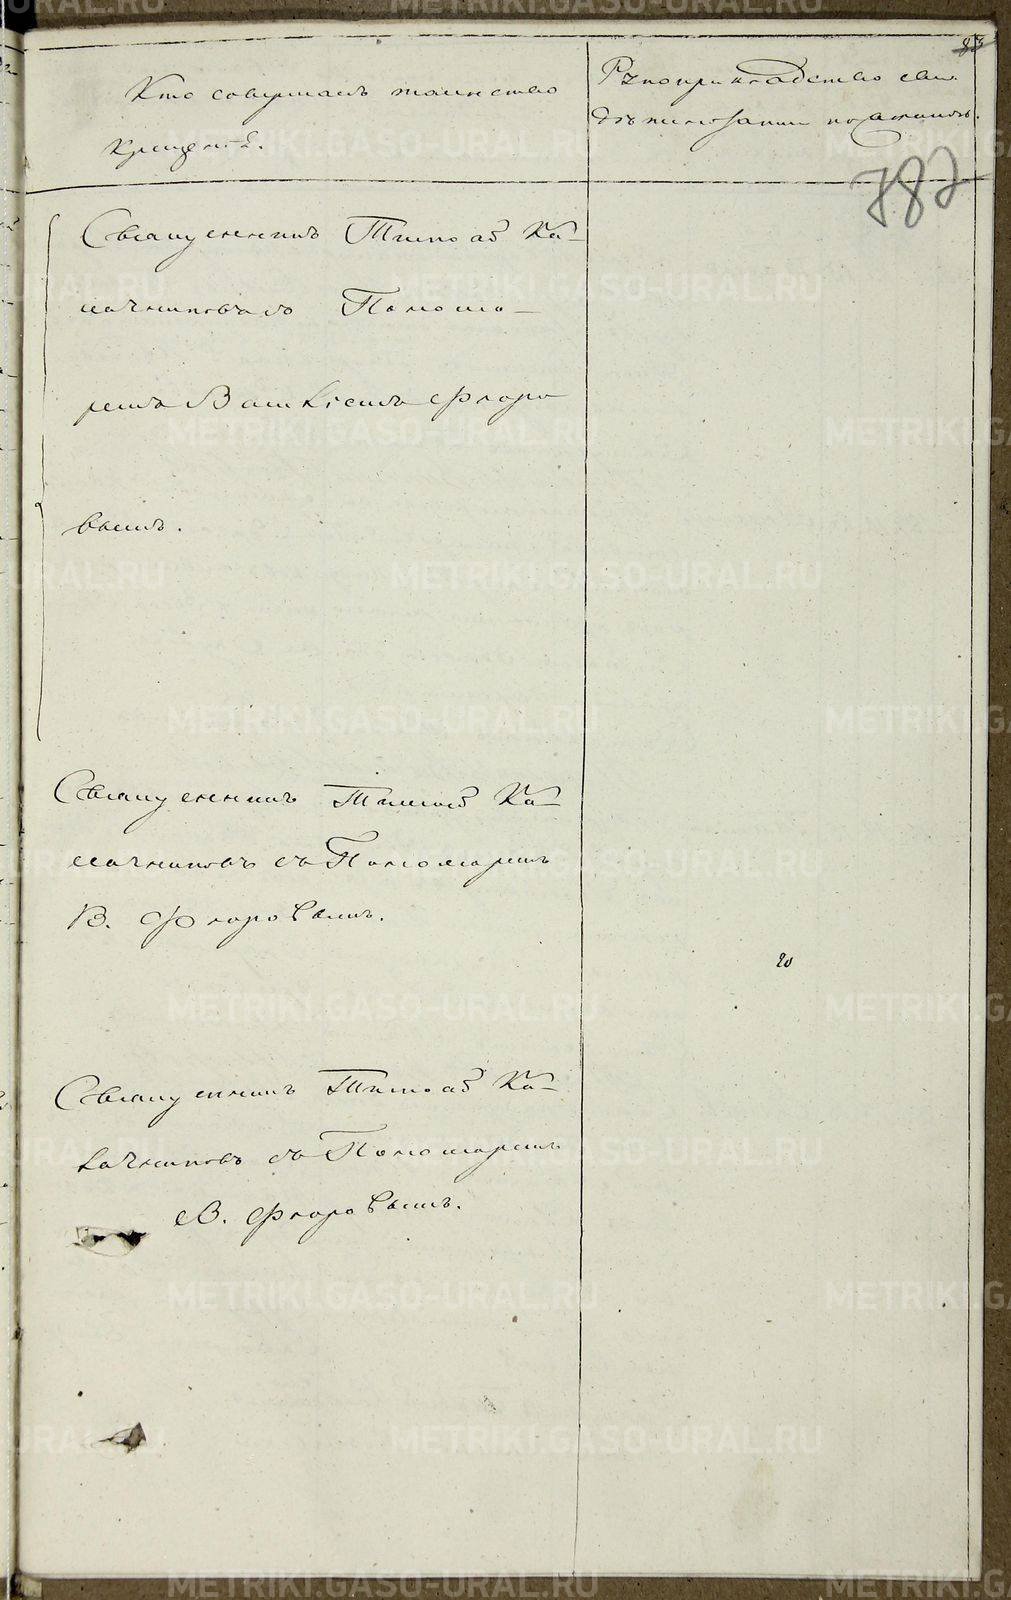 83
Кто совершалъ таинство
крещенія.
Рукоприкладство сви-
дѣтелей записи по желанію.
787
Священникъ Тимоѳей Ка-
лачниковъ съ Пономо-
ремъ Василіемъ Флоро
вымъ.
Священникъ Тимоѳей Ка-
лачниковъ съ Пономаремъ
В. Флоровымъ.
Священникъ Тимоѳей Ка-
лачниковъ съ Пономаремъ
В. Флоровымъ.
METRIKI.GASO-URAL.RU